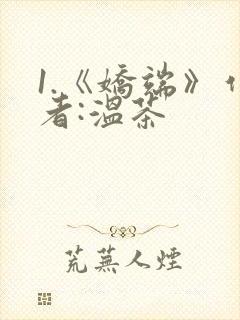 1.《嬌端》作
者:溫茶
荒蕪人煙